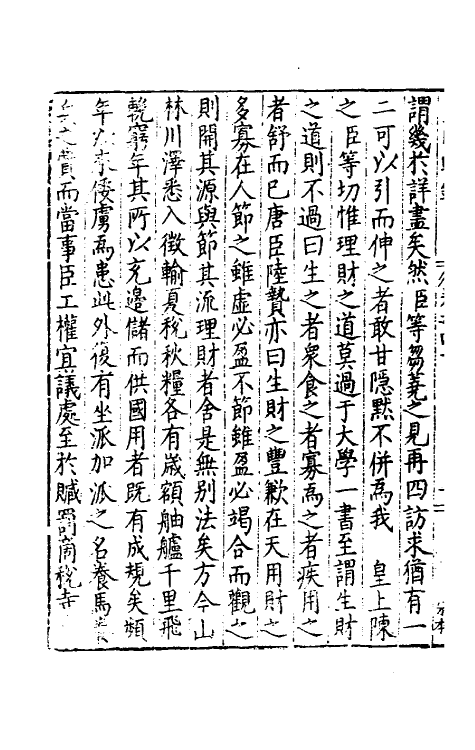 謂幾於詳盡矣然臣等芻蕘之見再四訪求猶有一
二可以引而伸之者敢甘隱默不併為我　皇上陳
之臣等切惟理財之道莫過于大學一書至謂生財
之道則不過曰生之者衆食之者寡為之者疾用之
者舒而已唐臣陸贄亦曰生財之豐歉在天用財之
多寡在人節之雖虛必盈不節雖盈必竭合而觀之
則開其源與節其流理財者舍是無別法矣方今山
林川澤悉入徵輸夏稅秋糧各有歲額舳艫千里飛
輓窮年其所以充邊儲而供國用者既有成規矣頻
年以來倭虜為患此外復有坐派加派之名養馬
之費而當事臣工權宜議處至於贓罰商稅寺